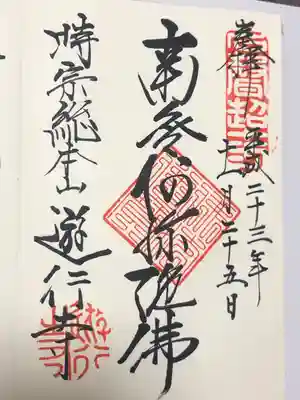 奉拝 平成二十三年
十一月二十五日
南無阿弥陀佛
時宗総本山 遊行寺